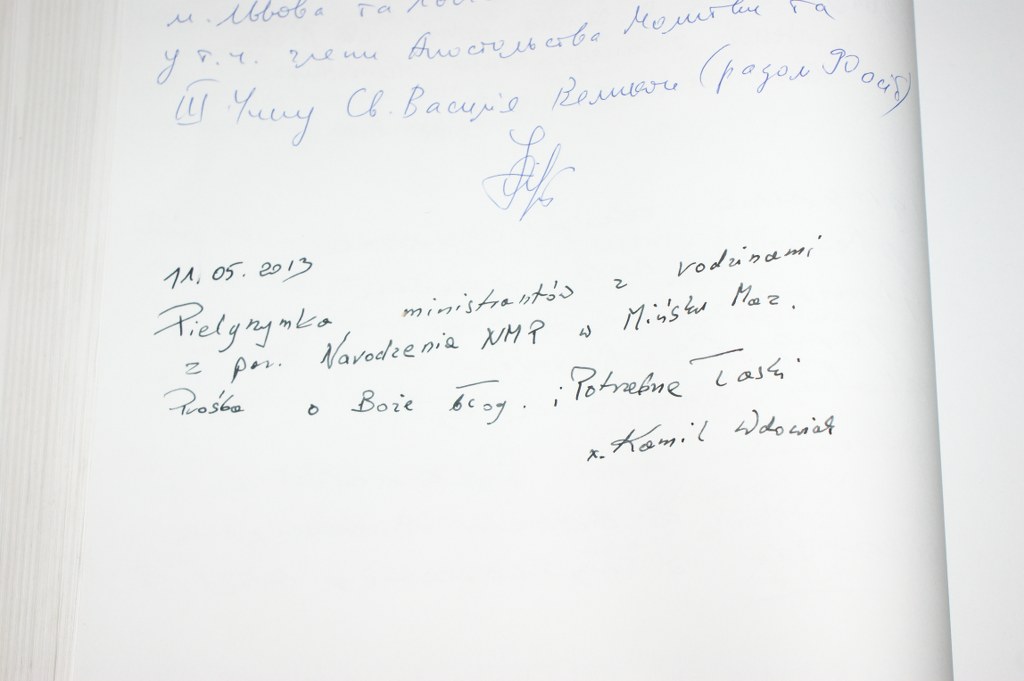 м. Львова та
у т.ч. члени Апостольства Молитви та
III Чину Св. Василія Великого (разом 90 осіб)
11.05.2013
Pielgrzymka ministrantów z rodzinami
z par. Narodzenia NMP w Mińsku Maz.
Prośba o Boże błog. i Potrzebne Łaski
x. Kamil Wdowiak